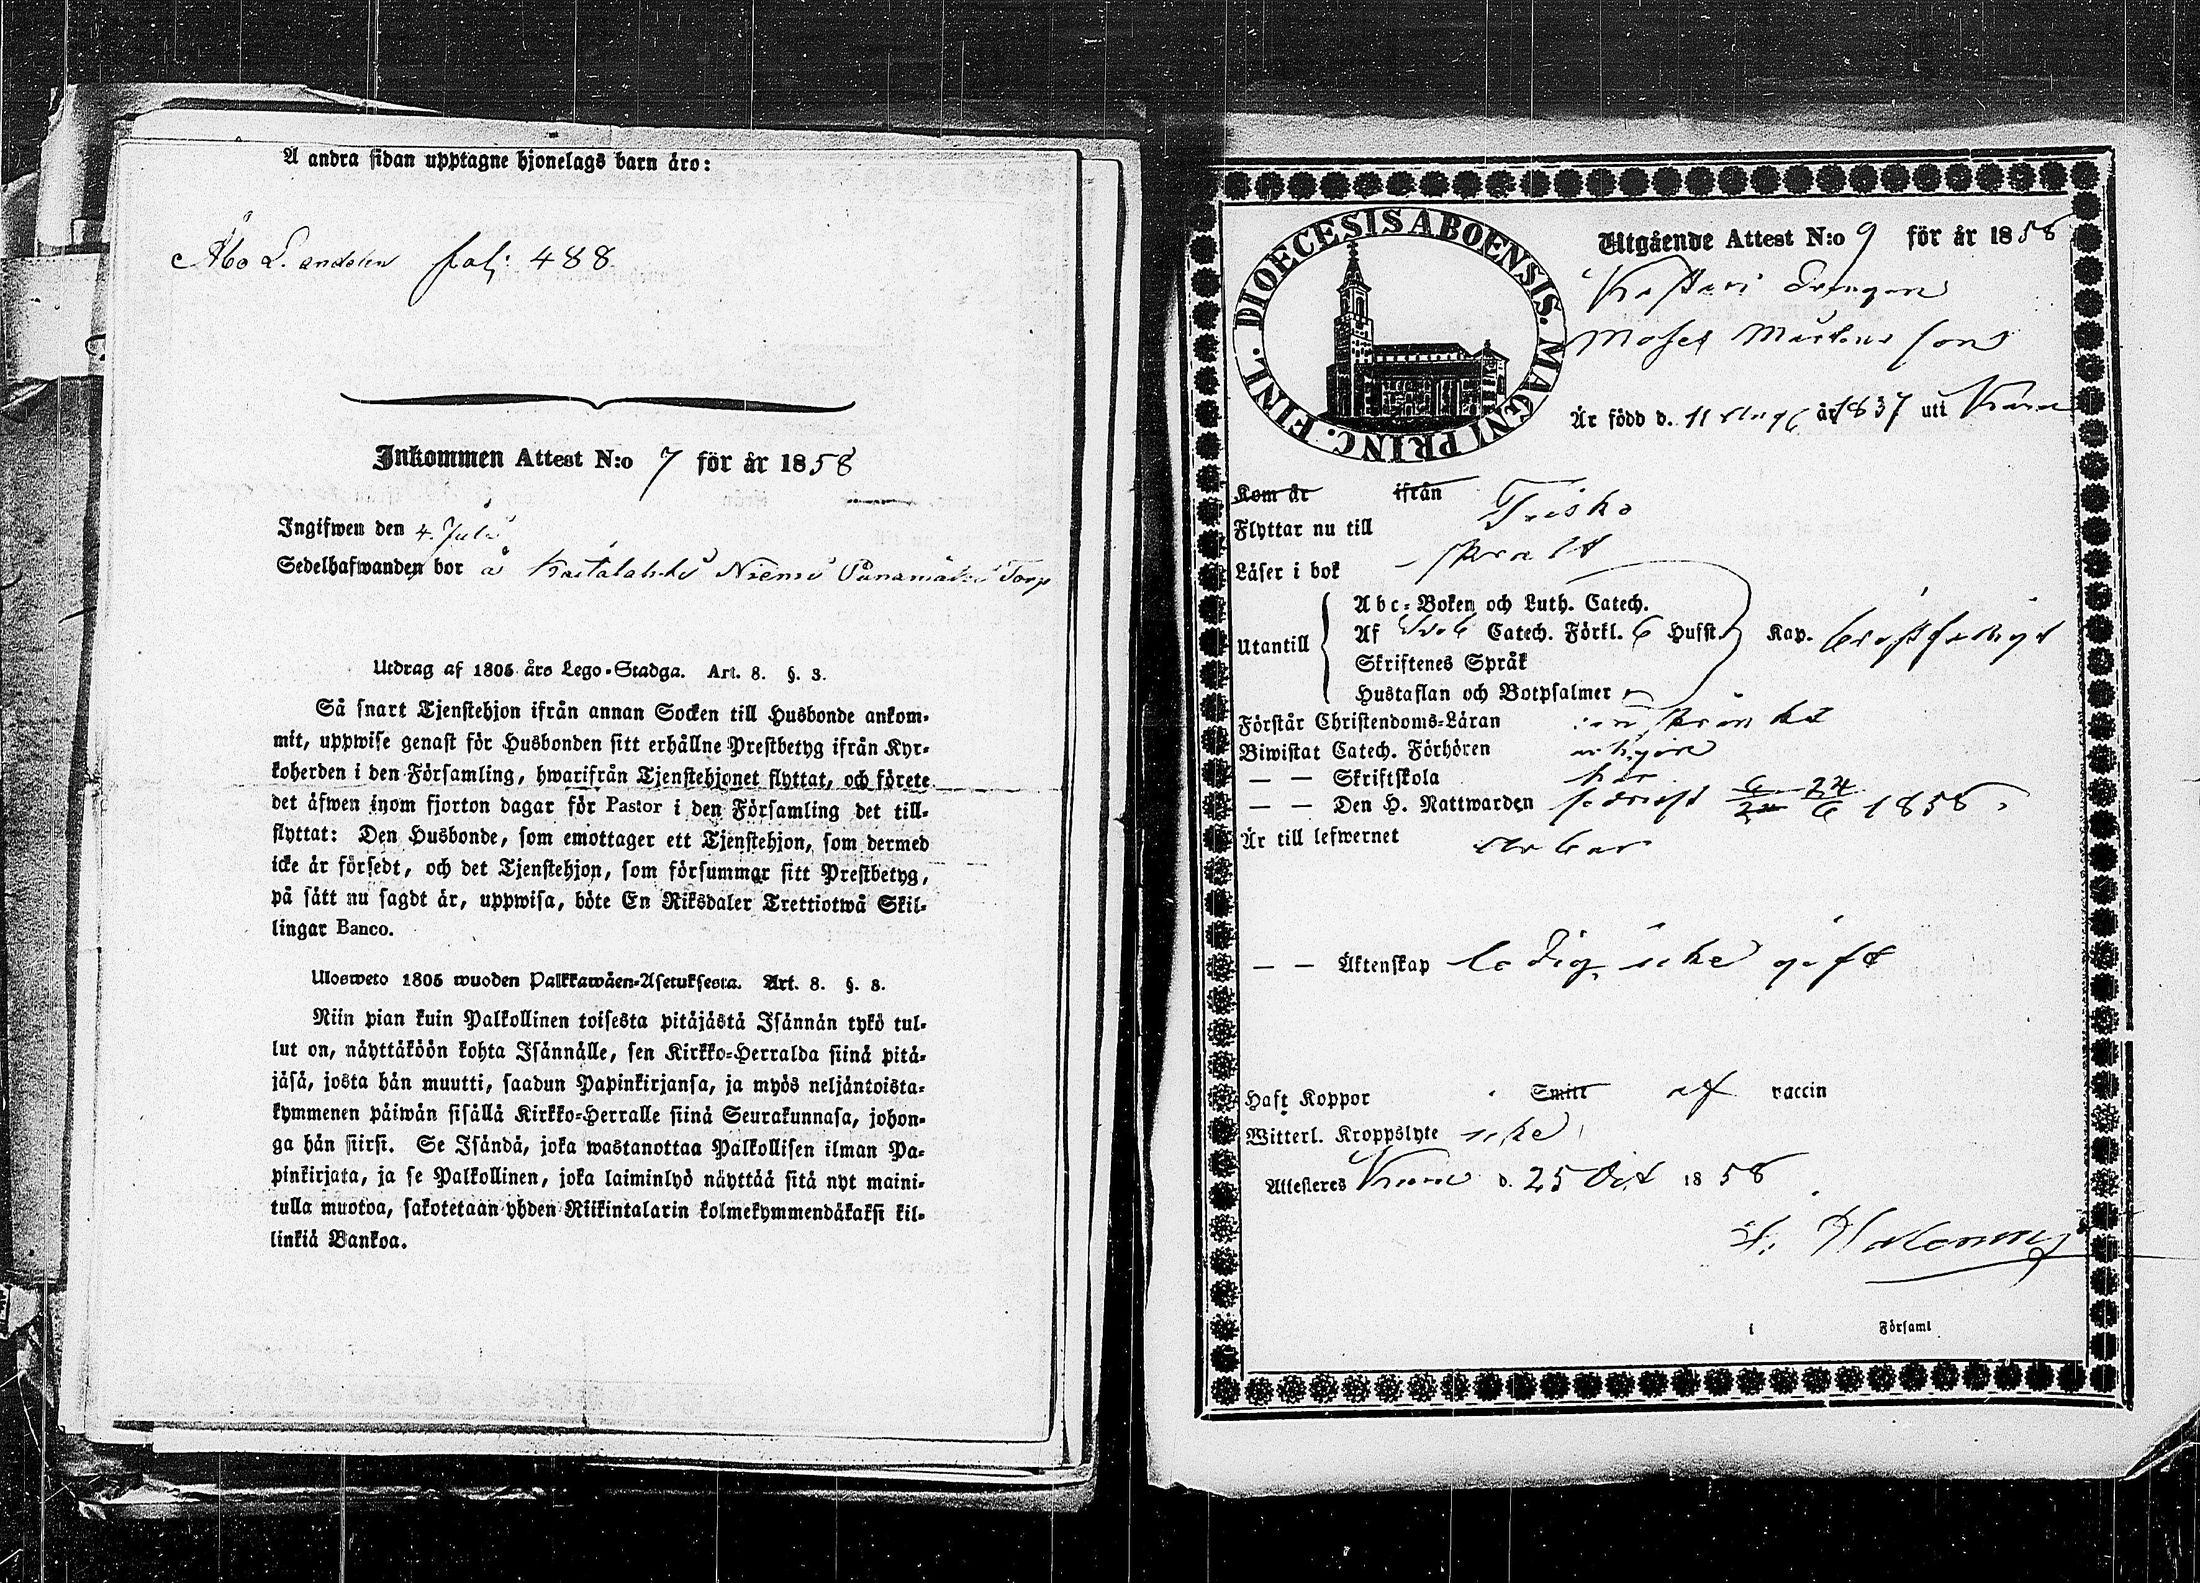 A andra sidan upptagne hjonelags barn äro:
Åbo L. andelen folj: 488
Inkommen Attest N:o 7 för år 1858
Ingifwen den 4. Juli
Sedelhafwanden bor å Niemi Torp
Utdrag af 1805 års Lego-Stadga. Art. 8. §. 3.
Så snart Tjenstehjon ifrån annan Socken till Husbonde ankom-
mit, uppwise genast för Husbonden sitt erhållne Prestbetyg ifrån Kyr-
koherden i den Församling, hwarifrån Tjenstehjonet flyttat, och förete
det äfwen inom fjorton dagar för Pastor i den Församling det till-
flyttat: Den Husbonde, som emottager ett Tjenstehjon, som dermed
icke är försedt, och det Tjenstehjon, som försummar sitt Prestbetyg,
på sätt nu sagdt är, uppwisa, böte En Riksdaler Trettiotwå Skil-
lingar Banco.
Ulosweto 1805 wuoden Palkkawäen-Asetuksesta. Art. 8. §. 3.
Niin pian kuin Palkollinen toisesta pitäjästä Isännän tykö tul-
lut on, näyttäköön kohta Isännälle, sen Kirkko-Herralda siinä pitä-
jäsä, josta hän muutti, saadun Papinkirjansa, ja myös neljäntoista-
kymmenen päiwän sisällä Kirkko-Herralle siinä Seurakunnasa, johon-
ga hän siirsi. Se Isändä, joka wastanottaa Palkollisen ilman Pa-
pinkirjata, ja se Palkollinen, joka laiminlyö näyttää sitä nyt maini-
tulla muotoa, sakotetaan yhden Riikintalarin kolmekymmendäkaksi kil-
linkiä Bankoa.
DIOECESIS ABOENSIS. MAGNI PRINC. FINL.
Utgående Attest N:o 9 för år 1858
Drengen
Moses Mårtens son
Är född d. 11 Aug år 1837 uti
Kom år ifrån
Flyttar nu till
Läser i bok
Utantill
Abc-Boken och Luth. Catech.
Af Catech. Förkl. 6 Hufst. Kap.
Skriftenes Språk
Hustaflan och Botpsalmer
Förstår Christendoms-Läran
Biwistat Catech. Förhören
— — Skriftskola
— — Den H. Nattwarden 24/6 1858.
Är till lefwernet
— — Äktenskap ledig, icke gift
Haft Koppor Smitt af vaccin
Witterl. Kroppslyte icke
Attesteres d. 25 Oct 1858
i Församl